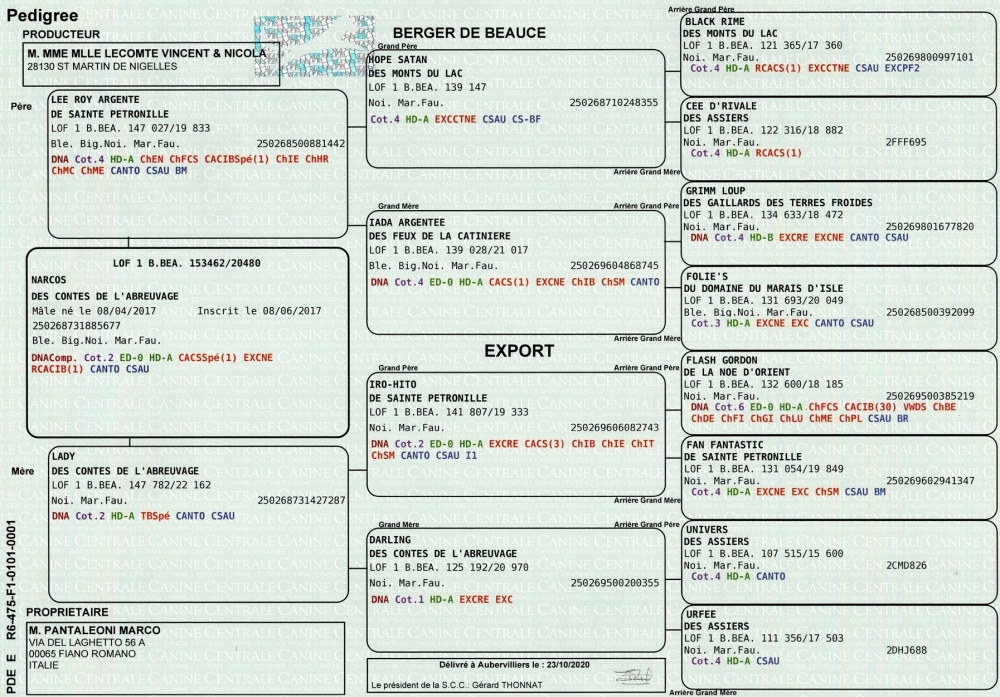 Pedigree
PRODUCTEUR
M. MME MLLE LECOMTE VINCENT & NICOLA
28130 ST MARTIN DE NIGELLES
BERGER DE BEAUCE
EXPORT
Père
LEE ROY ARGENTE
DE SAINTE PETRONILLE
LOF 1 B.BEA. 147 027/19 833
Ble. Big.Noi. Mar.Fau. 250268500881442
DNA Cot.4 HD-A ChEN ChFCS CACIBSpé(1) ChIE ChHR
ChMC ChME CANTO CSAU BM
LOF 1 B.BEA. 153462/20480
NARCOS
DES CONTES DE L'ABREUVAGE
Mâle né le 08/04/2017 Inscrit le 08/06/2017
250268731885677
Ble. Big.Noi. Mar.Fau.
DNAComp. Cot.2 ED-0 HD-A CACSSpé(1) EXCNE
RCACIB(1) CANTO CSAU
Mère
LADY
DES CONTES DE L'ABREUVAGE
LOF 1 B.BEA. 147 782/22 162
Noi. Mar.Fau. 250268731427287
DNA Cot.2 HD-A TBSpé CANTO CSAU
PROPRIETAIRE
M. PANTALEONI MARCO
VIA DEL LAGHETTO 56 A
00065 FIANO ROMANO
ITALIE
PDE E R6-475-F1-0101-0001
Grand Père
HOPE SATAN
DES MONTS DU LAC
LOF 1 B.BEA. 139 147
Noi. Mar.Fau. 250268710248355
Cot.4 HD-A EXCCTNE CSAU CS-BF
Grand Mère
IADA ARGENTEE
DES FEUX DE LA CATINIERE
LOF 1 B.BEA. 139 028/21 017
Ble. Big.Noi. Mar.Fau. 250269604868745
DNA Cot.4 ED-0 HD-A CACS(1) EXCNE ChIB ChSM CANTO
Grand Père
IRO-HITO
DE SAINTE PETRONILLE
LOF 1 B.BEA. 141 807/19 333
Noi. Mar.Fau. 250269606082743
DNA Cot.2 ED-0 HD-A EXCRE CACS(3) ChIB ChIE ChIT
ChSM CANTO CSAU I1
Grand Mère
DARLING
DES CONTES DE L'ABREUVAGE
LOF 1 B.BEA. 125 192/20 970
Noi. Mar.Fau. 250269500200355
DNA Cot.1 HD-A EXCRE EXC
Délivré à Aubervilliers le : 23/10/2020
Le président de la S.C.C.: Gérard THONNAT
Arrière Grand Père
BLACK RIME
DES MONTS DU LAC
LOF 1 B.BEA. 121 365/17 360
Noi. Mar.Fau. 250269800997101
Cot.4 HD-A RCACS(1) EXCCTNE CSAU EXCPF2
CEE D'RIVALE
DES ASSIERS
LOF 1 B.BEA. 122 316/18 882
Noi. Mar.Fau. 2FFF695
Cot.4 HD-A RCACS(1)
Arrière Grand Mère
Arrière Grand Père
GRIMM LOUP
DES GAILLARDS DES TERRES FROIDES
LOF 1 B.BEA. 134 633/18 472
Noi. Mar.Fau. 250269801677820
DNA Cot.4 HD-B EXCRE EXCNE CANTO CSAU
FOLIE'S
DU DOMAINE DU MARAIS D'ISLE
LOF 1 B.BEA. 131 693/20 049
Ble. Big.Noi. Mar.Fau. 250268500392099
Cot.3 HD-A EXCNE EXC CANTO CSAU
Arrière Grand Mère
Arrière Grand Père
FLASH GORDON
DE LA NOE D'ORIENT
LOF 1 B.BEA. 132 600/18 185
Noi. Mar.Fau. 250269500385219
DNA Cot.6 ED-0 HD-A ChFCS CACIB(30) VWDS ChBE
ChDE ChFI ChGI ChLU ChME ChPL CSAU BR
FAN FANTASTIC
DE SAINTE PETRONILLE
LOF 1 B.BEA. 131 054/19 849
Noi. Mar.Fau. 250269602941347
Cot.4 HD-A EXCNE EXC ChSM CSAU BM
Arrière Grand Mère
Arrière Grand Père
UNIVERS
DES ASSIERS
LOF 1 B.BEA. 107 515/15 600
Noi. Mar.Fau. 2CMD826
Cot.4 HD-A CANTO
URFEE
DES ASSIERS
LOF 1 B.BEA. 111 356/17 503
Noi. Mar.Fau. 2DHJ688
Cot.4 HD-A CSAU
Arrière Grand Mère